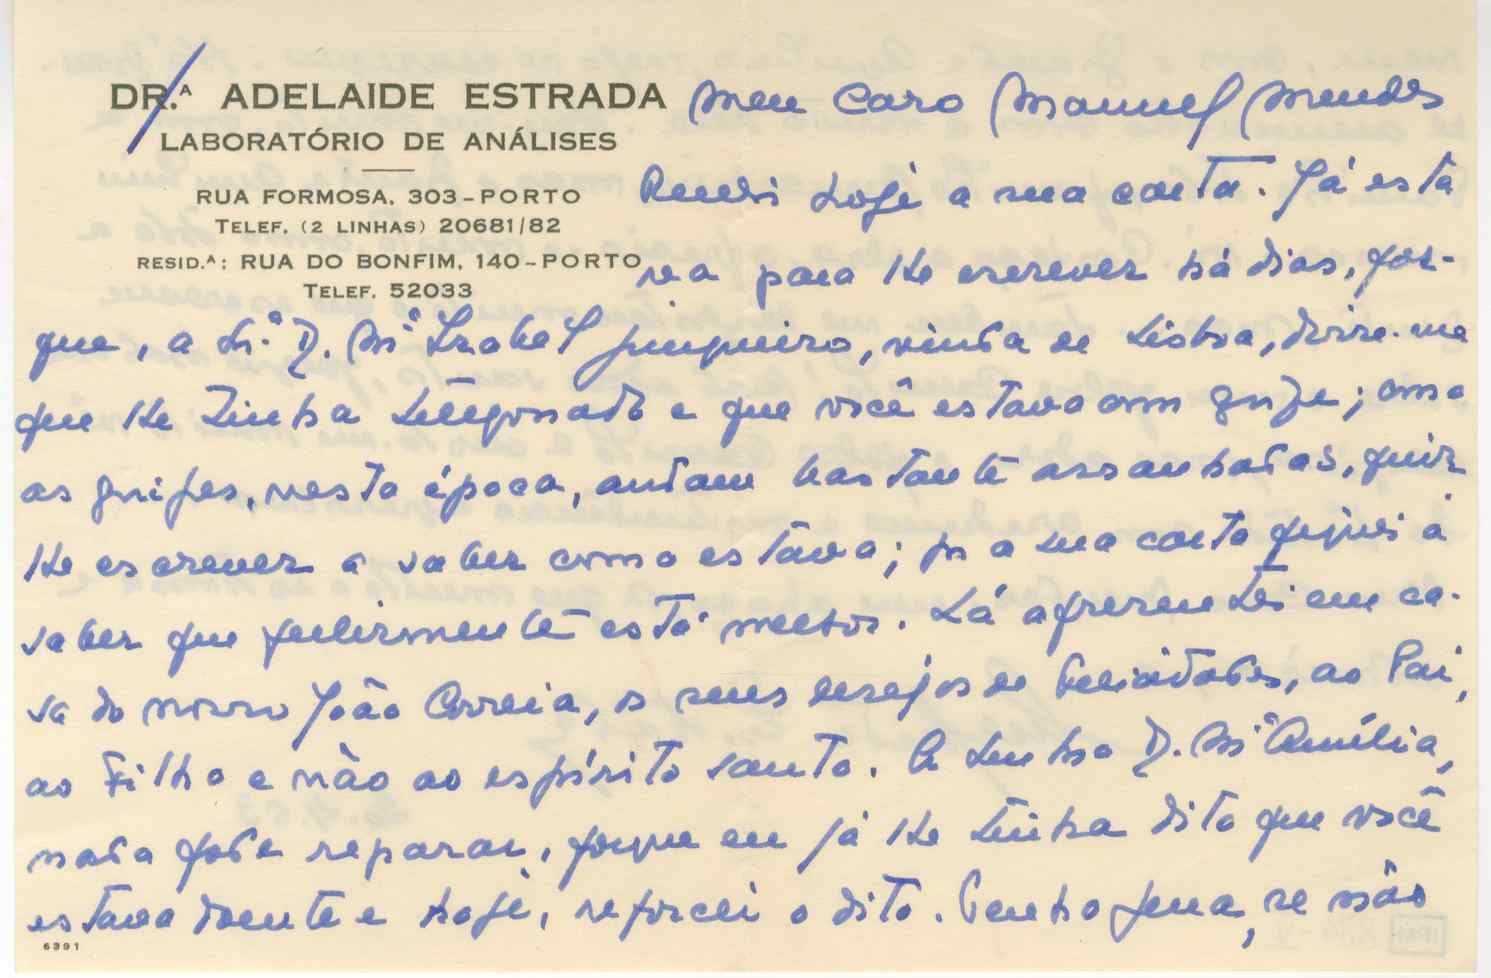 DR.ª ADELAIDE ESTRADA
LABORATÓRIO DE ANÁLISES
RUA FORMOSA, 303-PORTO
TELEF. (2 LINHAS) 20681/82
RESID.ª: RUA DO BONFIM, 140-PORTO
TELEF. 52033
Meu Caro Manuel Mendes
Recebi hoje a sua carta. Já esta
va para lhe escrever há dias, por-
que, a Sr.ª D. Mª Izabel Junqueiro, vinda de Lisboa, disse-me
que lhe tinha telefonado e que você estava com gripe; como
as gripes, nesta época, andam bastante assanhadas, quiz
lhe escrever a saber como estava; p.ª a sua carta fiquei a
saber que felizmente está melhor. Lá apresentei em ca-
sa do nosso João Correia, os seus desejos de felicidades, ao Pai,
ao Filho e não ao espírito santo. A Senhora D. Mª Amélia,
nada pode reparar, porque eu já lhe tinha dito que você
estava doente e hoje, reforcei o dito. Tenho pena, se não
6391